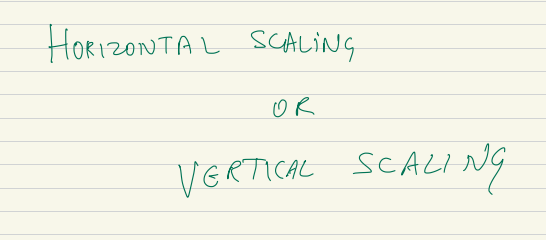 HORIZONTAL SCALING
OR
VERTICAL SCALING